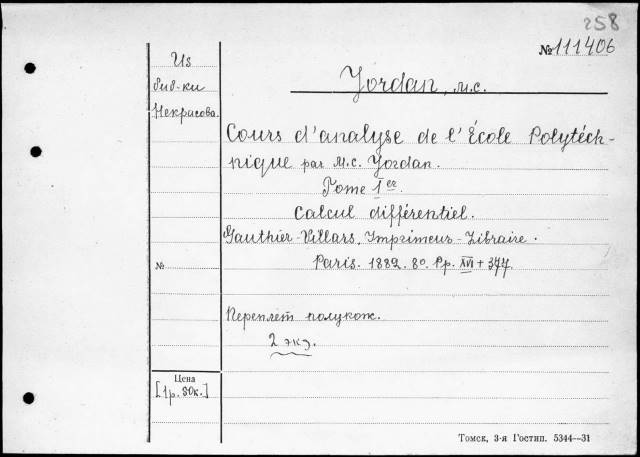 258
№ 111406
Из
биб-ки
Некрасова.
Jordan, M.C.
Cours d'analyse de l'École Polytéch-
nique par M.C. Jordan.
Tome I er
Calcul différentiel.
Gauthier-Villars, Imprimeur-Libraire.
Paris. 1882. 8º. Pp. XVI + 377.
№
Переплет полукож.
2 экз.
Цена
[1р. 80к.]
Томск, 3-я Гостип. 5344—31